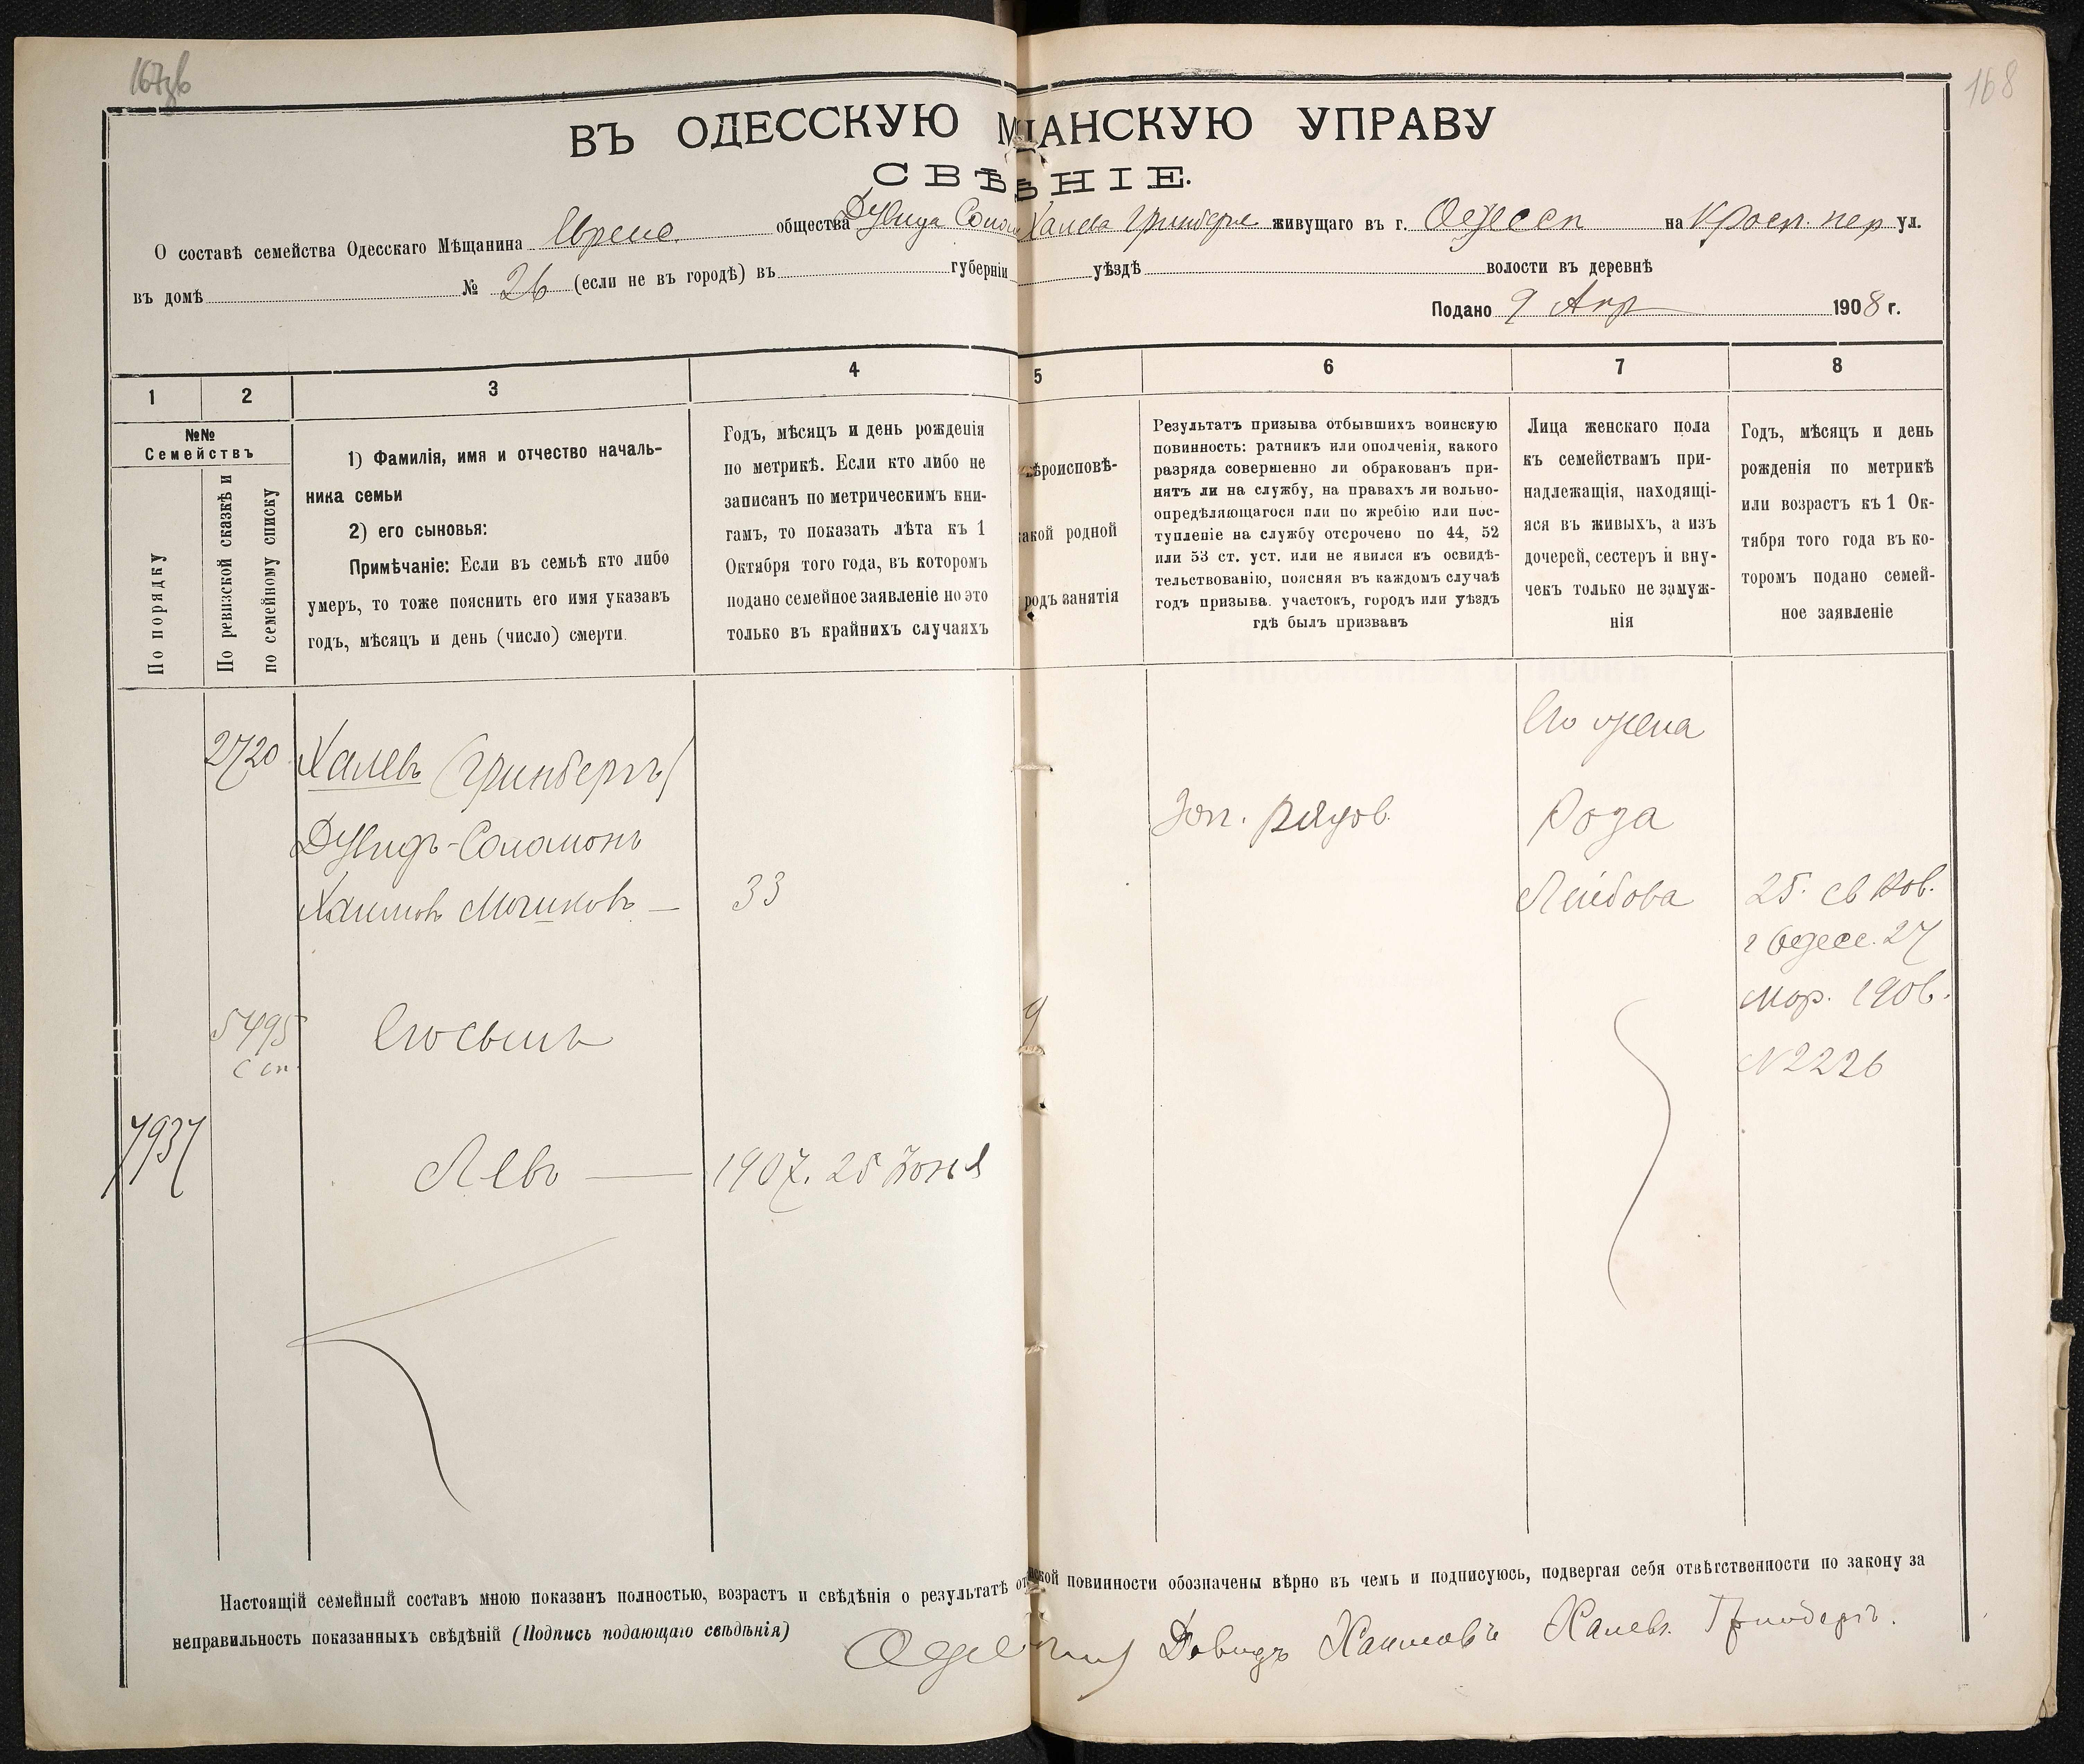 168
ВЪ ОДЕССКУЮ М ЩАНСКУЮ УПРАВУ
СВѢ ѢНІЕ.
О составѣ семейства Одесскаго Мѣщанина Еврейс. общества Дувида Солом Халева Гринберга живущаго въ г. Одессѣ на Красн. пер ул.
въ домѣ № 26 (если не въ городѣ) въ губерніи уѣздѣ волости въ деревнѣ
Подано 9 Апр 1908 г.
1 2 3 4 5 6 7 8
№№
Семействъ
По порядку
По ревизской сказкѣ и
по семейному списку
1) Фамилія, имя и отчество началь-
ника семьи
2) его сыновья:
Примѣчаніе: Если въ семьѣ кто либо
умеръ, то тоже пояснить его имя указавъ
годъ, мѣсяцъ и день (число) смерти.
Годъ, мѣсяцъ и день рожденія
по метрикѣ. Если кто либо не
записанъ по метрическимъ кни-
гамъ, то показать лѣта къ 1
Октября того года, въ которомъ
подано семейное заявленіе но это
только въ крайнихъ случаяхъ
ѣроисповѣ-
акой родной
родъ занятія
Результатъ призыва отбывшихъ воинскую
повинность: ратникъ или ополченія, какого
разряда совершенно ли обракованъ при-
нятъ ли на службу, на правахъ ли вольно-
опредѣляющагося или по жребію или пос-
тупленіе на службу отсрочено по 44, 52
или 53 ст. уст. или не явился къ освидѣ-
тельствованію, поясняя въ каждомъ случаѣ
годъ призыва. участокъ, городъ или уѣздъ
гдѣ былъ призванъ
Лица женскаго пола
къ семействамъ при-
надлежащія, находящі-
яся въ живыхъ, а изъ
дочерей, сестеръ и вну-
чекъ только не замуж-
нія
Годъ, мѣсяцъ и день
рожденія по метрикѣ
или возрастъ къ 1 Ок-
тября того года въ ко-
торомъ подано семей-
ное заявленіе
2720 Халевъ (Гринбергъ)
Дувидъ-Соломонъ
Хаимовъ Мошковъ — 33
Зап. рядов.
Его жена
Роза
Лейбова
25. св Рав.
г Одесс. 27
Мар. 1906.
№ 2226
5495
С сп.
Его сынъ
7937
Левъ — 1907. 25 Іюня
Настоящій семейный составъ мною показанъ полностью, возрастъ и свѣдѣнія о результатѣ от ской повинности обозначены вѣрно въ чемъ и подписуюсь, подвергая себя отвѣтственности по закону за
неправильность показанныхъ свѣдѣній (Подпись подающаго свѣдѣнія) Давидъ Хаимовъ Халевъ Гринбергъ.